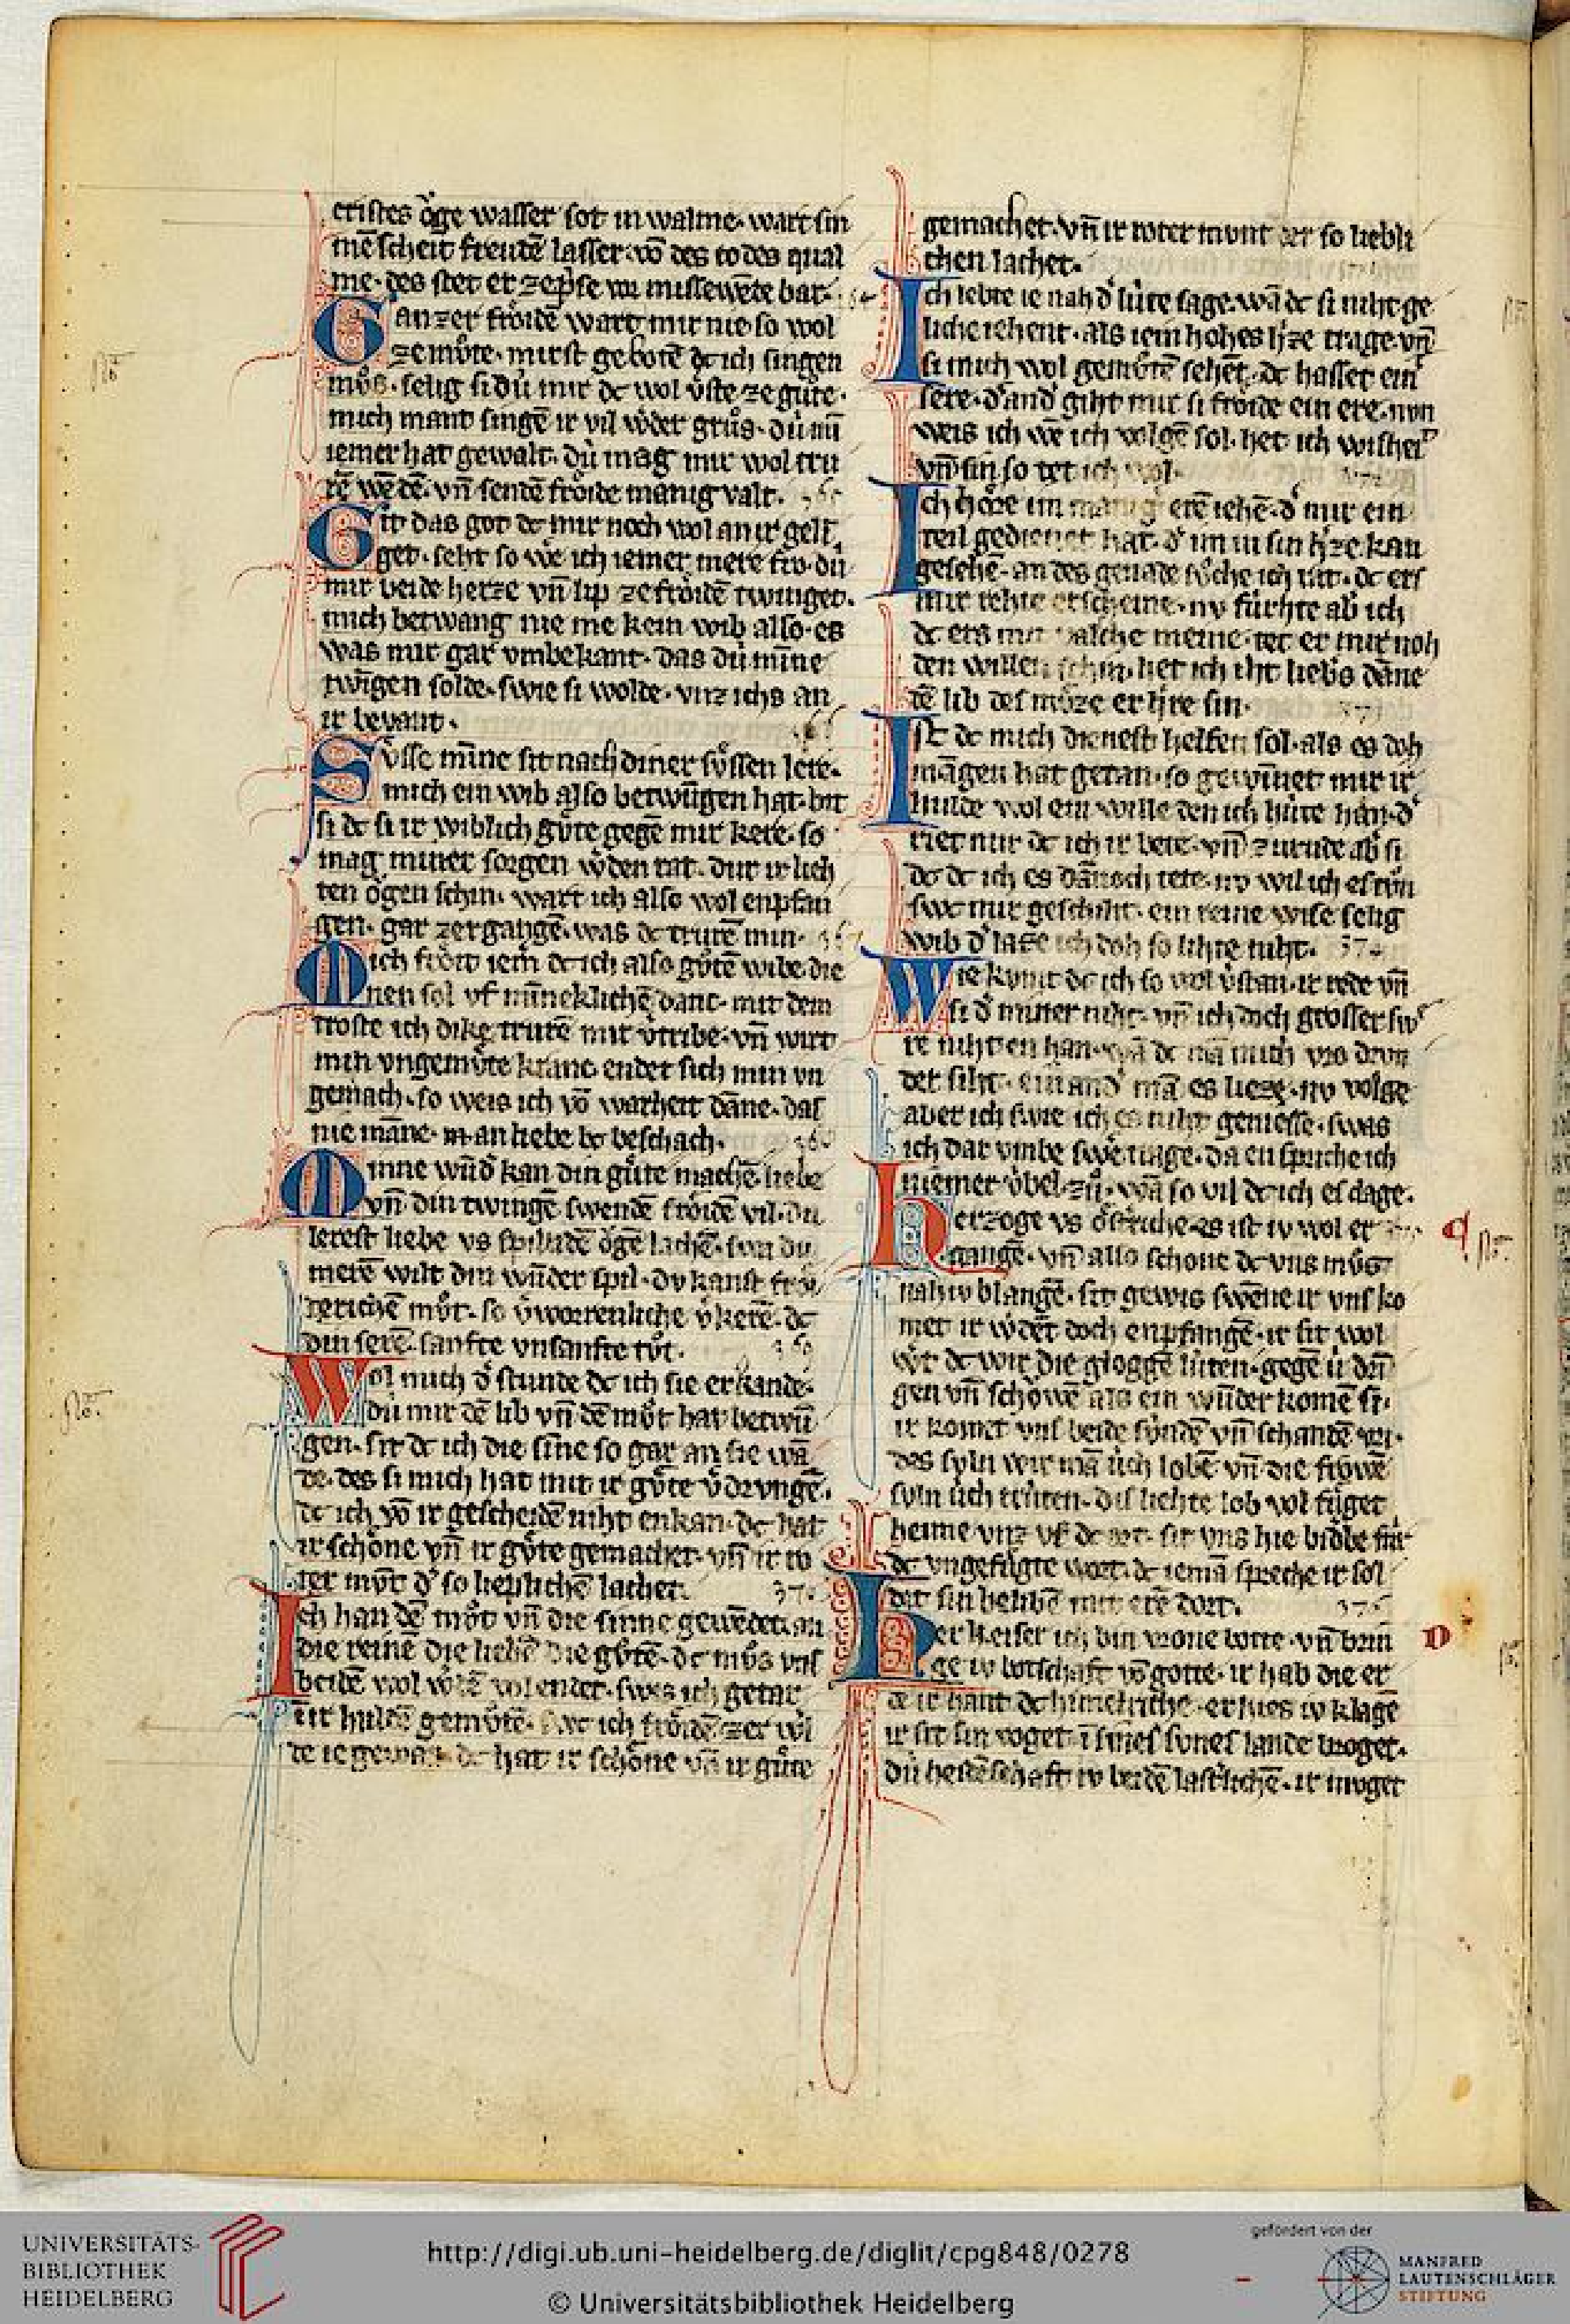 cristes öge wasser sot in walme. wart sin
mē scheit freudē lasser. vō des todes qual
me. des stet er
Ganzer fröidē wart mir nie so wol
ze mv̊te. mirst gebotē dc ich singen
mv̊s. selig si dú mir dc wol v̓ste ze gůte.
mich mant singē ir vil w̓der grůs. dú mī
iemer hat gewalt. dú mag mir wol tru
rē wēdē. vn̄ sendē fröide manig valt.
Git das got dc mir noch wol an ir gelī
get. seht so w̓e ich iemer mere fro. dú
mir beide herze vn̄ lip ze fröidē twinget.
mich betwang nie me kein wib also. es
was mir gar vmbekant. das dú mīne
twīgen solde. swie si wolde. vnz ichs an
ir bevant.
Sv̊sse mīne sit nach diner sv̊ssen lere.
mich ein wib also betwūgen hat. bit
si dc si ir wiblich gv̊te gegē mir kere. so
mag miner sorgen w̓den rat. dur ir lieh
ten ögen schin. wart ich also wol enpfan
gen. gar zergangē. was dc trurē min.
Mich fröit iem̓ dc ich also gv̊tē wibe die
nen sol vf mīneklichē danc. mit dem
troste ich dike trurē mir v̓tribe. vn̄ wirt
min vngemv̊te kranc. endet sich min vn
gemach. so weis ich vō warheit dāne. das
nie māne. an liebe bc beschach.
Minne wūd̓ kan din gůte machē. liebe
vn̄ din twingē swendē fröidē vil. du
lerest liebe vs ögē lachē. swa du
merē wilt din wūder spil. dv kanst fröi
derichē mv̊t. so v̓worrenliche v̓kerē. dc
din serē. sanfte vnsanfte tůt.
Wol mich d̓ stunde dc ich sie erkande.
dú mir dē lib vn̄ dē mv̊t hat betwū
gen. sit dc ich die sīne so gar an sie wā
de. des si mich hat mit ir gv̊te v̓drvngē.
dc ich vō ir gescheidē niht enkan. dc hat
ir schöne vn̄ ir gv̊te gemachet. vn̄ ir ro
ter mvt d̓ so lieplichē lachet.
Ich han dē mv̊t vn̄ die sinne gewēdet. an
die reinē die liebē die gv̊tē. dc mv̊s vns
beidē wol w̓dē volendet. swes ich getar
an ir huldē gemv̊tē. swc ich fröidē zer w̓l
de ie gewan. dc hat ir schöne vn̄ ir gůte
gemachet. vn̄ ir roter mvnt der so liebli
chen lachet.
Ich lebte ie nah d̓ lúte sage. wā dc si niht ge
liche iehent. als iem hohes h̓ze trage. vn̄
si mich wol gemv̊tē sehēt. dc hasset ein̓
sere. d̓ and̓ giht mir si fröide ein ere. nvn
weis ich wē ich volgē sol. het ich wisheit
vn̄ sin so tet ich wol.
Ich höre im manig̓ erē iehē. d̓ mir ein
teil gedienet hat. d̓ im in sin h̓ze kan
gesehē. an des genade sv̊che ich rat. dc ers
mir rehte erscheine. nv fúrhte ab̓ ich
dc ers mit valsche meine. tet er mir noh
den willen schin. het ich iht liebs dāne
dē lib des mv̊ze er h̓re sin.
Ist dc mich dienest helfen sol. als es doh
māgen hat getan. so gewīnet mir ir
hulde wol ein wille den ich húte han. d̓
riet mir dc ich ir bete. vn̄ zurnde ab̓ si
dc dc ich es dānoch tete. nv wil ich es tv̊n
swc mir geschiht. ein reine wise selig
wib d̓ lase ich doh so lihte niht.
Wie kvmt dc ich so wol v̓stan. ir rede vn̄
si d̓ miner niht. vn̄ ich doch grosser sw̓
re niht en han. wā dc mā mich vro drvn
der siht. ein and̓ mā es lieze. nv volge
aber ich swie ich es niht geniesse. swas
ich dar vmbe sw̓e trage. da en spriche ich
niemer v̓bel zů. wā so vil dc ich es clage.
Herzoge vs österiche es ist iv wol er
gangē. vn̄ also schone dc vns mv̊s
nah iv blangē. sit gewis swēne ir vns ko
met ir w̓det doch enpfangē. ir sit wol
w̓t dc wir die gloggē lúten. gegē ú drī
gen vn̄ schöwē als ein wūder komē si.
ir komet vns beide súndē vn̄ schandē vri.
des svln wir mā úch lobē. vn̄ die frowē
svln úch trúten. dis liehte lob vol fůget
heime vnz vf dc ort. sit vns hie bid̓be fúr
dc vngefůgte wort. dc iemā spreche ir sol
det sin belibē mit erē dort.
Her keiser ich bin vrone botte. vn̄ brin
ge iv botschaft vō gotte. ir hab die er
de er hat dc himelriche. er hies iv klagē
ir sit sin voget. ī sines svnes lande broget.
dú heidēschaft iv beidē lasterlichē. ir mvget
UNIVERSITÄTS-
BIBLIOTHEK
HEIDELBERG
http://digi.ub.uni-heidelberg.de/diglit/cpg848/0278
© Universitätsbibliothek Heidelberg
gefördert von der
MANFRED
LAUTENSCHLÄGER
STIFTUNG